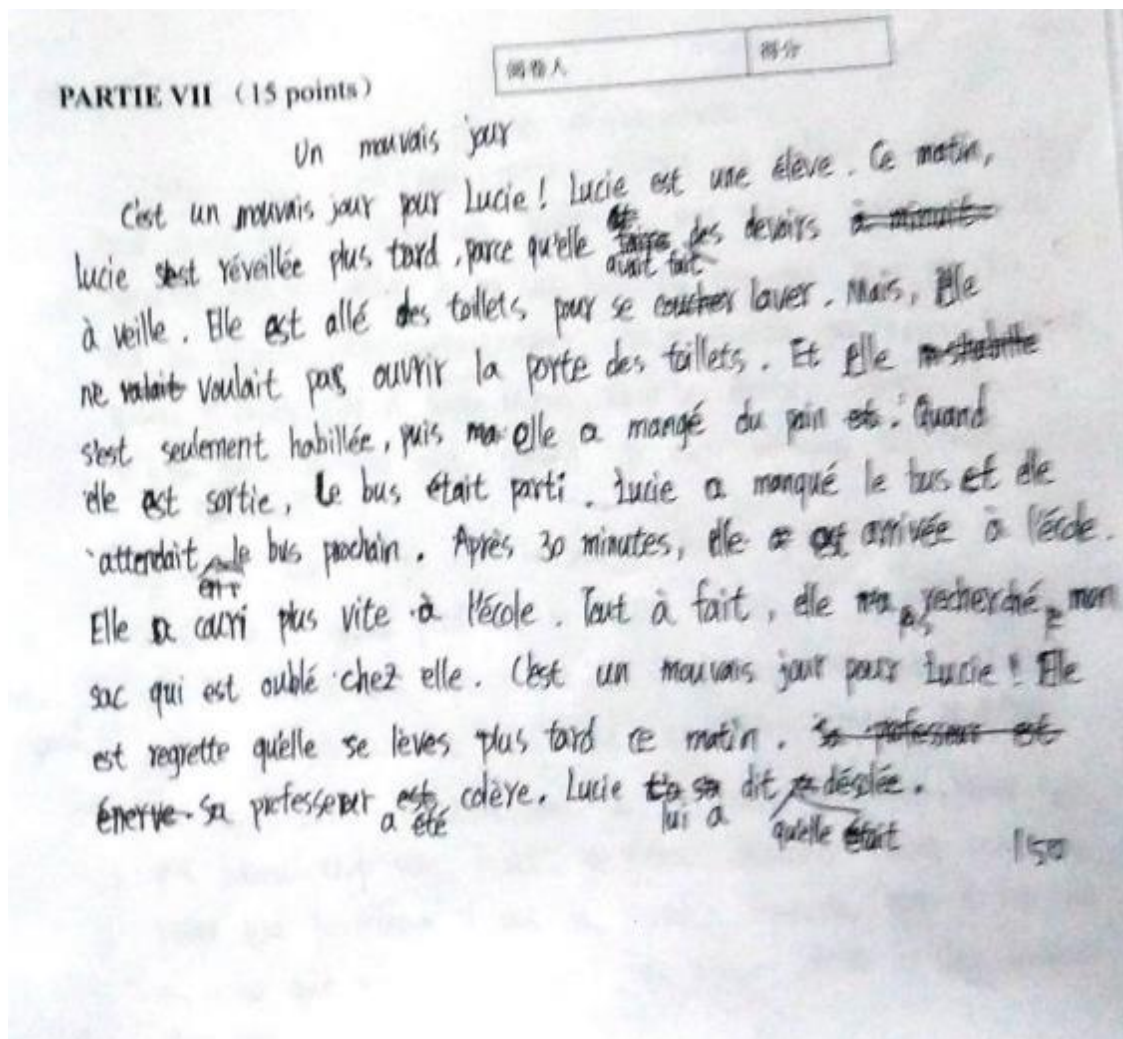 阅卷人 得分
PARTIE VII （15 points）
Un mauvais jour
C'est un mouvais jour pour Lucie ! Lucie est une élève . Ce matin,
lucie s'est réveillée plus tard , parce qu'elle avait fait des devoirs à minuit
à veille . Elle est allé des toillets pour se coucher laver . Mais, Elle
ne valait voulait pas ouvrir la porte des toillets . Et Elle
s'est seulement habillée, puis elle a mangé du pain et . Quand
elle est sortie, Le bus était parti . Lucie a manqué le bus et elle
attendait le bus prochain . Après 30 minutes, elle a est arrivée à l'école .
Elle a couri plus vite à l'école . Tout à fait , elle recherché mon
sac qui est oublé chez elle . C'est un mauvais jour pour Lucie ! Elle
est regrette qu'elle se lèves plus tard ce matin . Sa professeur est
énerve. Sa professeur est a été colère . Lucie lui a dit qu'elle était désolée .
150